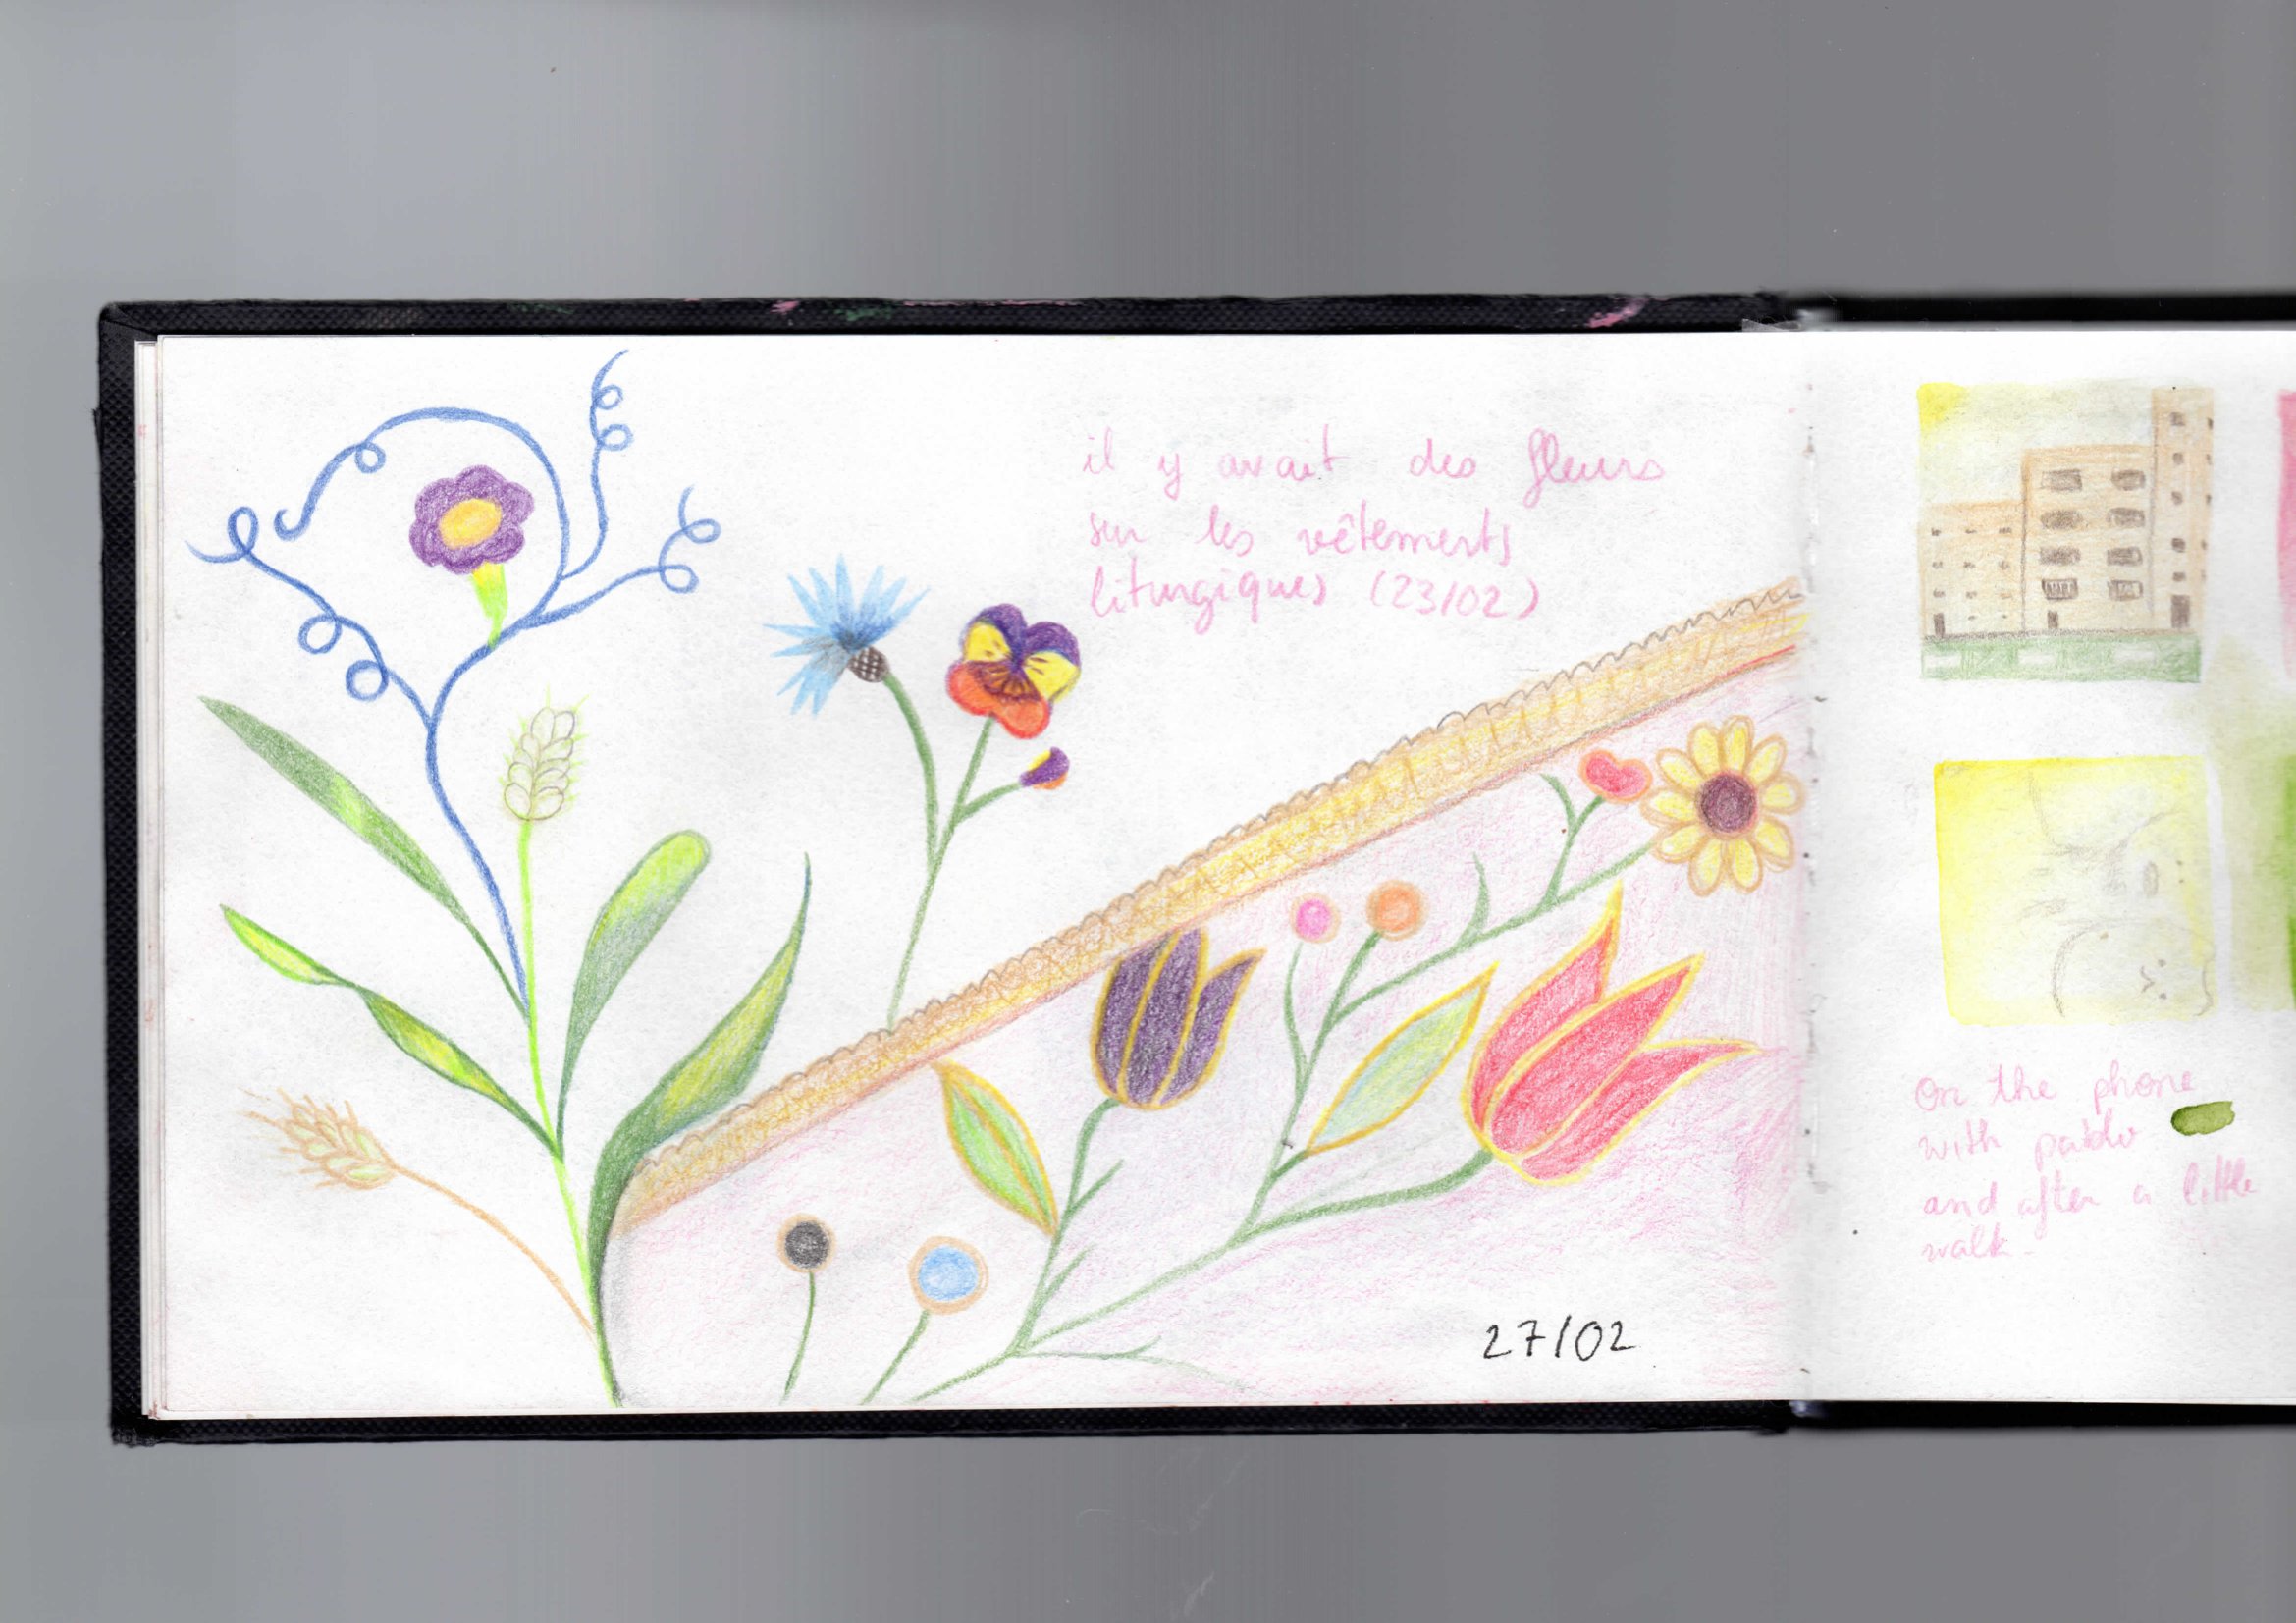 il y avait des fleurs
sur les vêtements
liturgiques (23/02)
27/02
on the phone
with pablo
and after a little
walk.